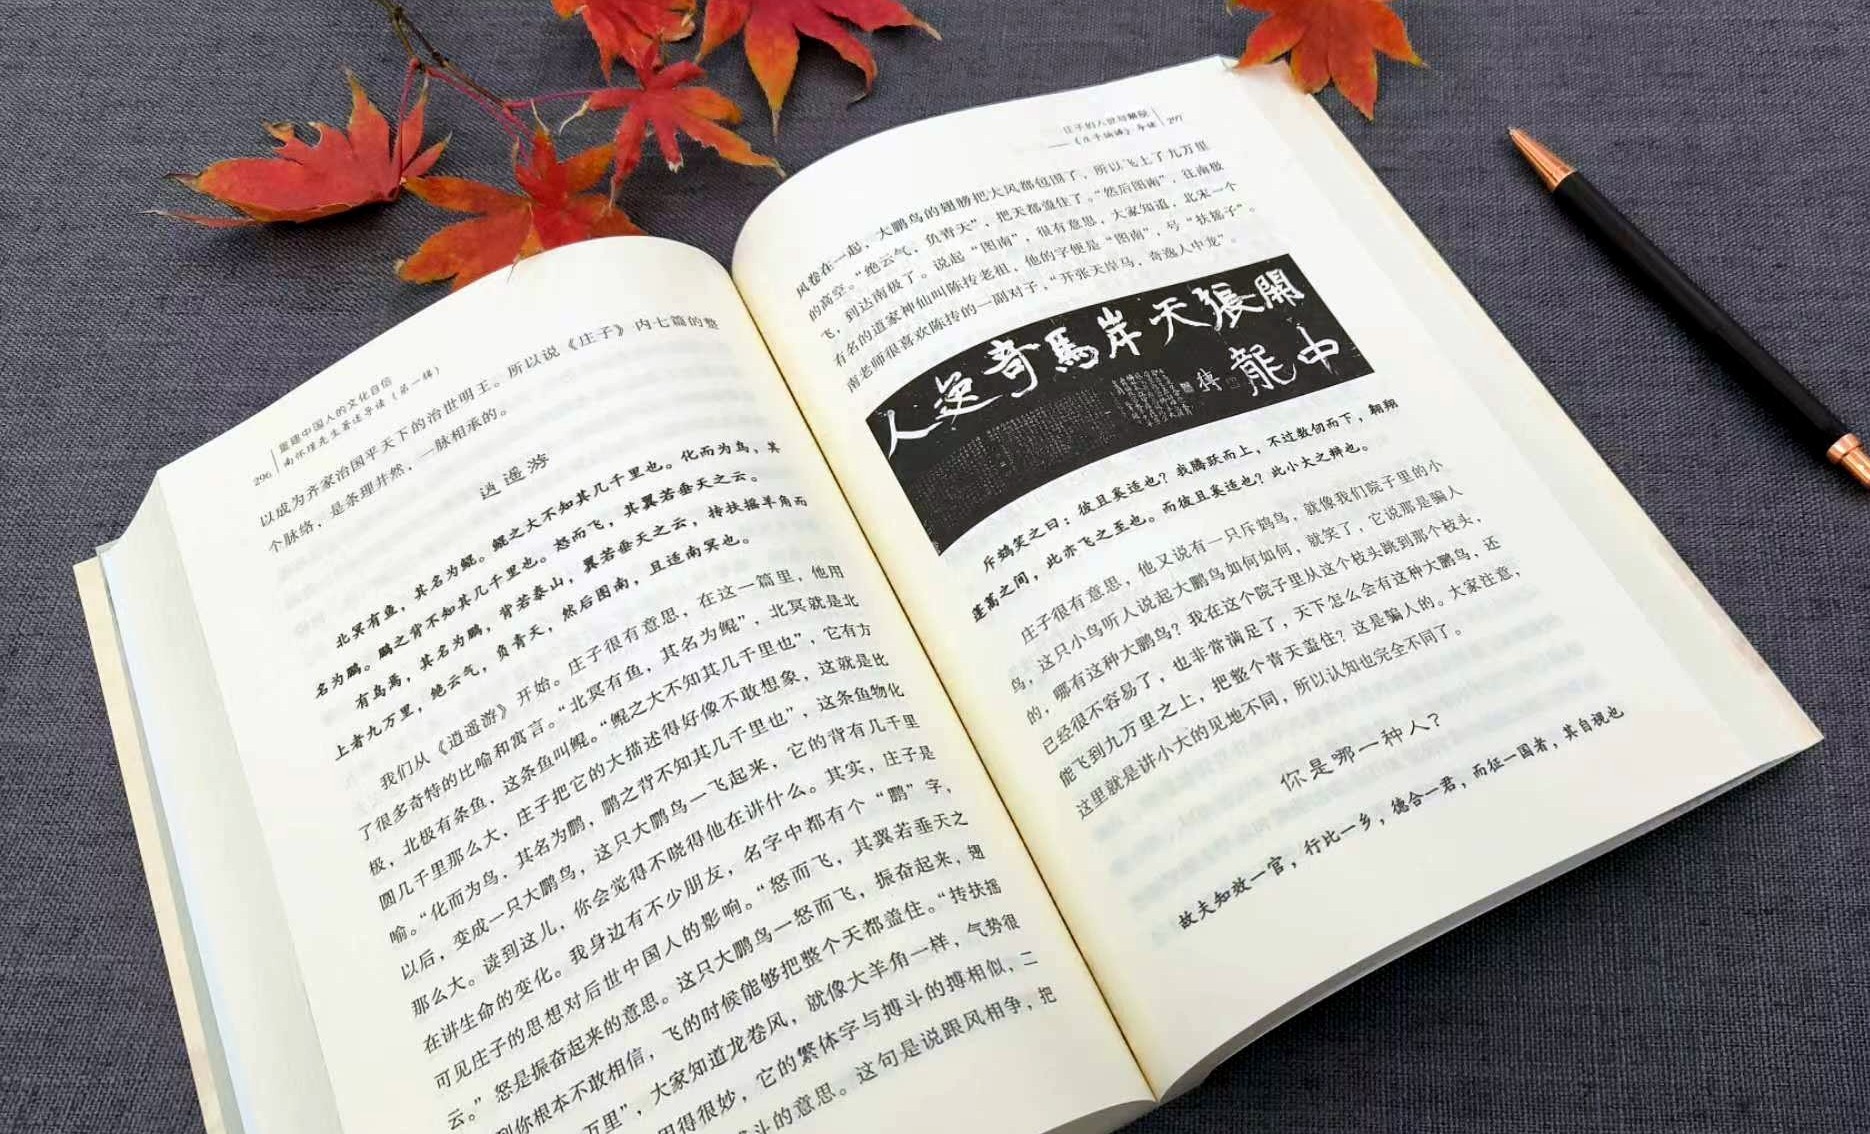 296
重建中国人的文化自信
南怀瑾先生著述导读（第一辑）
以成为齐家治国平天下的治世明王。所以说《庄子》内七篇的整
个脉络，是条理井然，一脉相承的。
逍遥游
北冥有鱼，其名为鲲。鲲之大不知其几千里也。化而为鸟，其
名为鹏。鹏之背不知其几千里也。怒而飞，其翼若垂天之云。
有鸟焉，其名为鹏，背若泰山，翼若垂天之云，抟扶摇羊角而
上者九万里，绝云气，负青天，然后图南，且适南冥也。
我们从《逍遥游》开始。庄子很有意思，在这一篇里，他用
了很多奇特的比喻和寓言。“北冥有鱼，其名为鲲”，北冥就是北
极，北极有条鱼，这条鱼叫鲲。“鲲之大不知其几千里也”，它有方
圆几千里那么大，庄子把它的大描述得好像不敢想象，这就是比
喻。“化而为鸟，其名为鹏，鹏之背不知其几千里也”，这条鱼物化
以后，变成一只大鹏鸟，这只大鹏鸟一飞起来，它的背有几千里
那么大。读到这儿，你会觉得不晓得他在讲什么。其实，庄子是
在讲生命的变化。我身边有不少朋友，名字中都有个“鹏”字，
可见庄子的思想对后世中国人的影响。“怒而飞，其翼若垂天之
云。”怒是振奋起来的意思。这只大鹏鸟一怒而飞，振奋起来，翅
到你根本不敢相信，飞的时候能够把整个天都盖住。“抟扶摇
万里”，大家知道龙卷风，就像大羊角一样，气势很
用得很妙，它的繁体字与搏斗的搏相似，二
斗的意思。这句是说跟风相争，把
庄子的入世与解脱
——《庄子諵譁》导读
297
风卷在一起，大鹏鸟的翅膀把大风都包围了，所以飞上了九万里
的高空。“绝云气，负青天”，把天都盖住了。“然后图南”，往南极
飞，到达南极了。说起“图南”，很有意思，大家知道，北宋一个
有名的道家神仙叫陈抟老祖，他的字便是“图南”，号“扶摇子”。
南老师很喜欢陈抟的一副对子，“开张天岸马，奇逸人中龙”。
開張天岸馬奇逸人
中龍
摶
斥鴳笑之曰：彼且奚适也？我腾跃而上，不过数仞而下，翱翔
蓬蒿之间，此亦飞之至也。而彼且奚适也？此小大之辩也。
庄子很有意思，他又说有一只斥鴳鸟，就像我们院子里的小
鸟，这只小鸟听人说起大鹏鸟如何如何，就笑了，它说那是骗人
的，哪有这种大鹏鸟？我在这个院子里从这个枝头跳到那个枝头，
已经很不容易了，也非常满足了，天下怎么会有这种大鹏鸟，还
能飞到九万里之上，把整个青天盖住？这是骗人的。大家注意，
这里就是讲小大的见地不同，所以认知也完全不同了。
你是哪一种人？
故夫知效一官，行比一乡，德合一君，而征一国者，其自视也